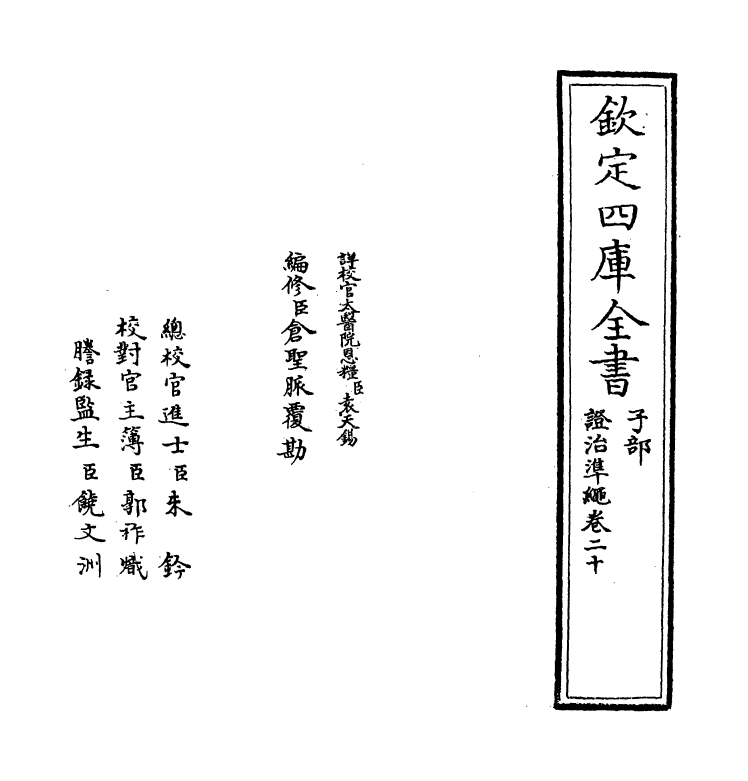 欽定四庫全書
子部
證治準繩卷二十
詳校官太醫院恩糧臣袁天錫
編修臣倉聖脈覆勘
總校官進士臣朱鈐
校對官主簿臣郭祚熾
謄錄監生臣饒文洲